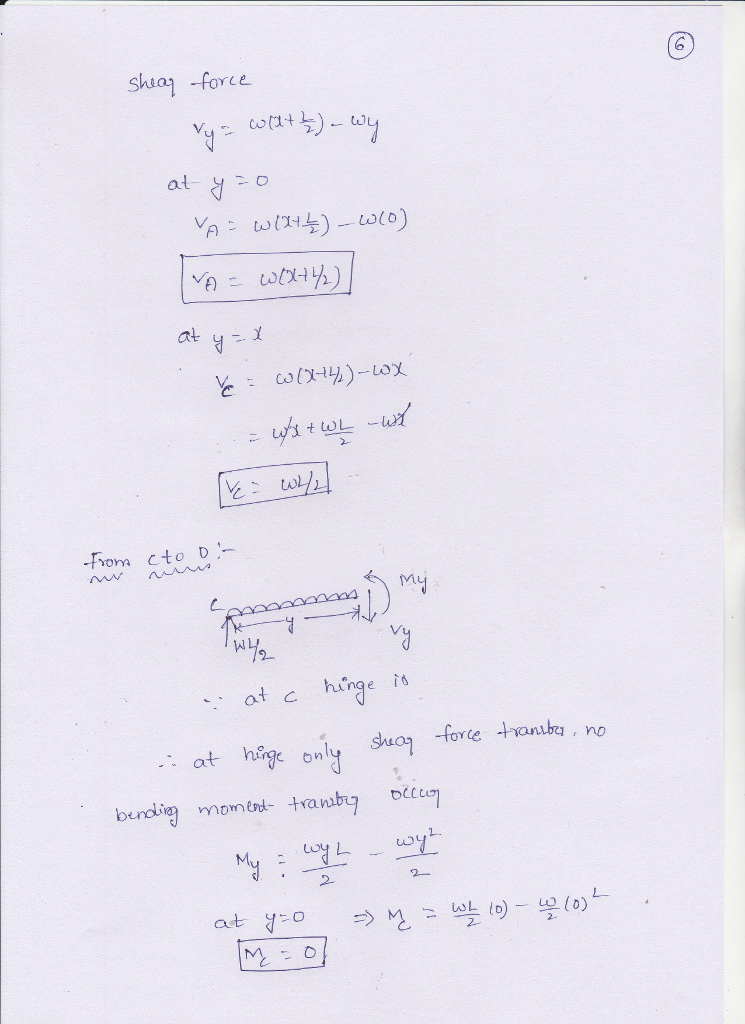 6
Shear force
Vy = w(x+L/2) - wy
at y = 0
VA = w(x+L/2) - w(0)
VA = w(x+L/2)
at y = x
Vc = w(x+L/2) - wx
= wx + wL/2 - wx
Vc = wL/2
From C to D :-
C My
y Vy
wL/2
∵ at C hinge is
∴ at hinge only shear force transfer, no
bending moment transfer occur
My = wyL/2 - wy²/2
at y=0 ⇒ Mc = wL/2 (0) - w/2 (0)²
Mc = 0